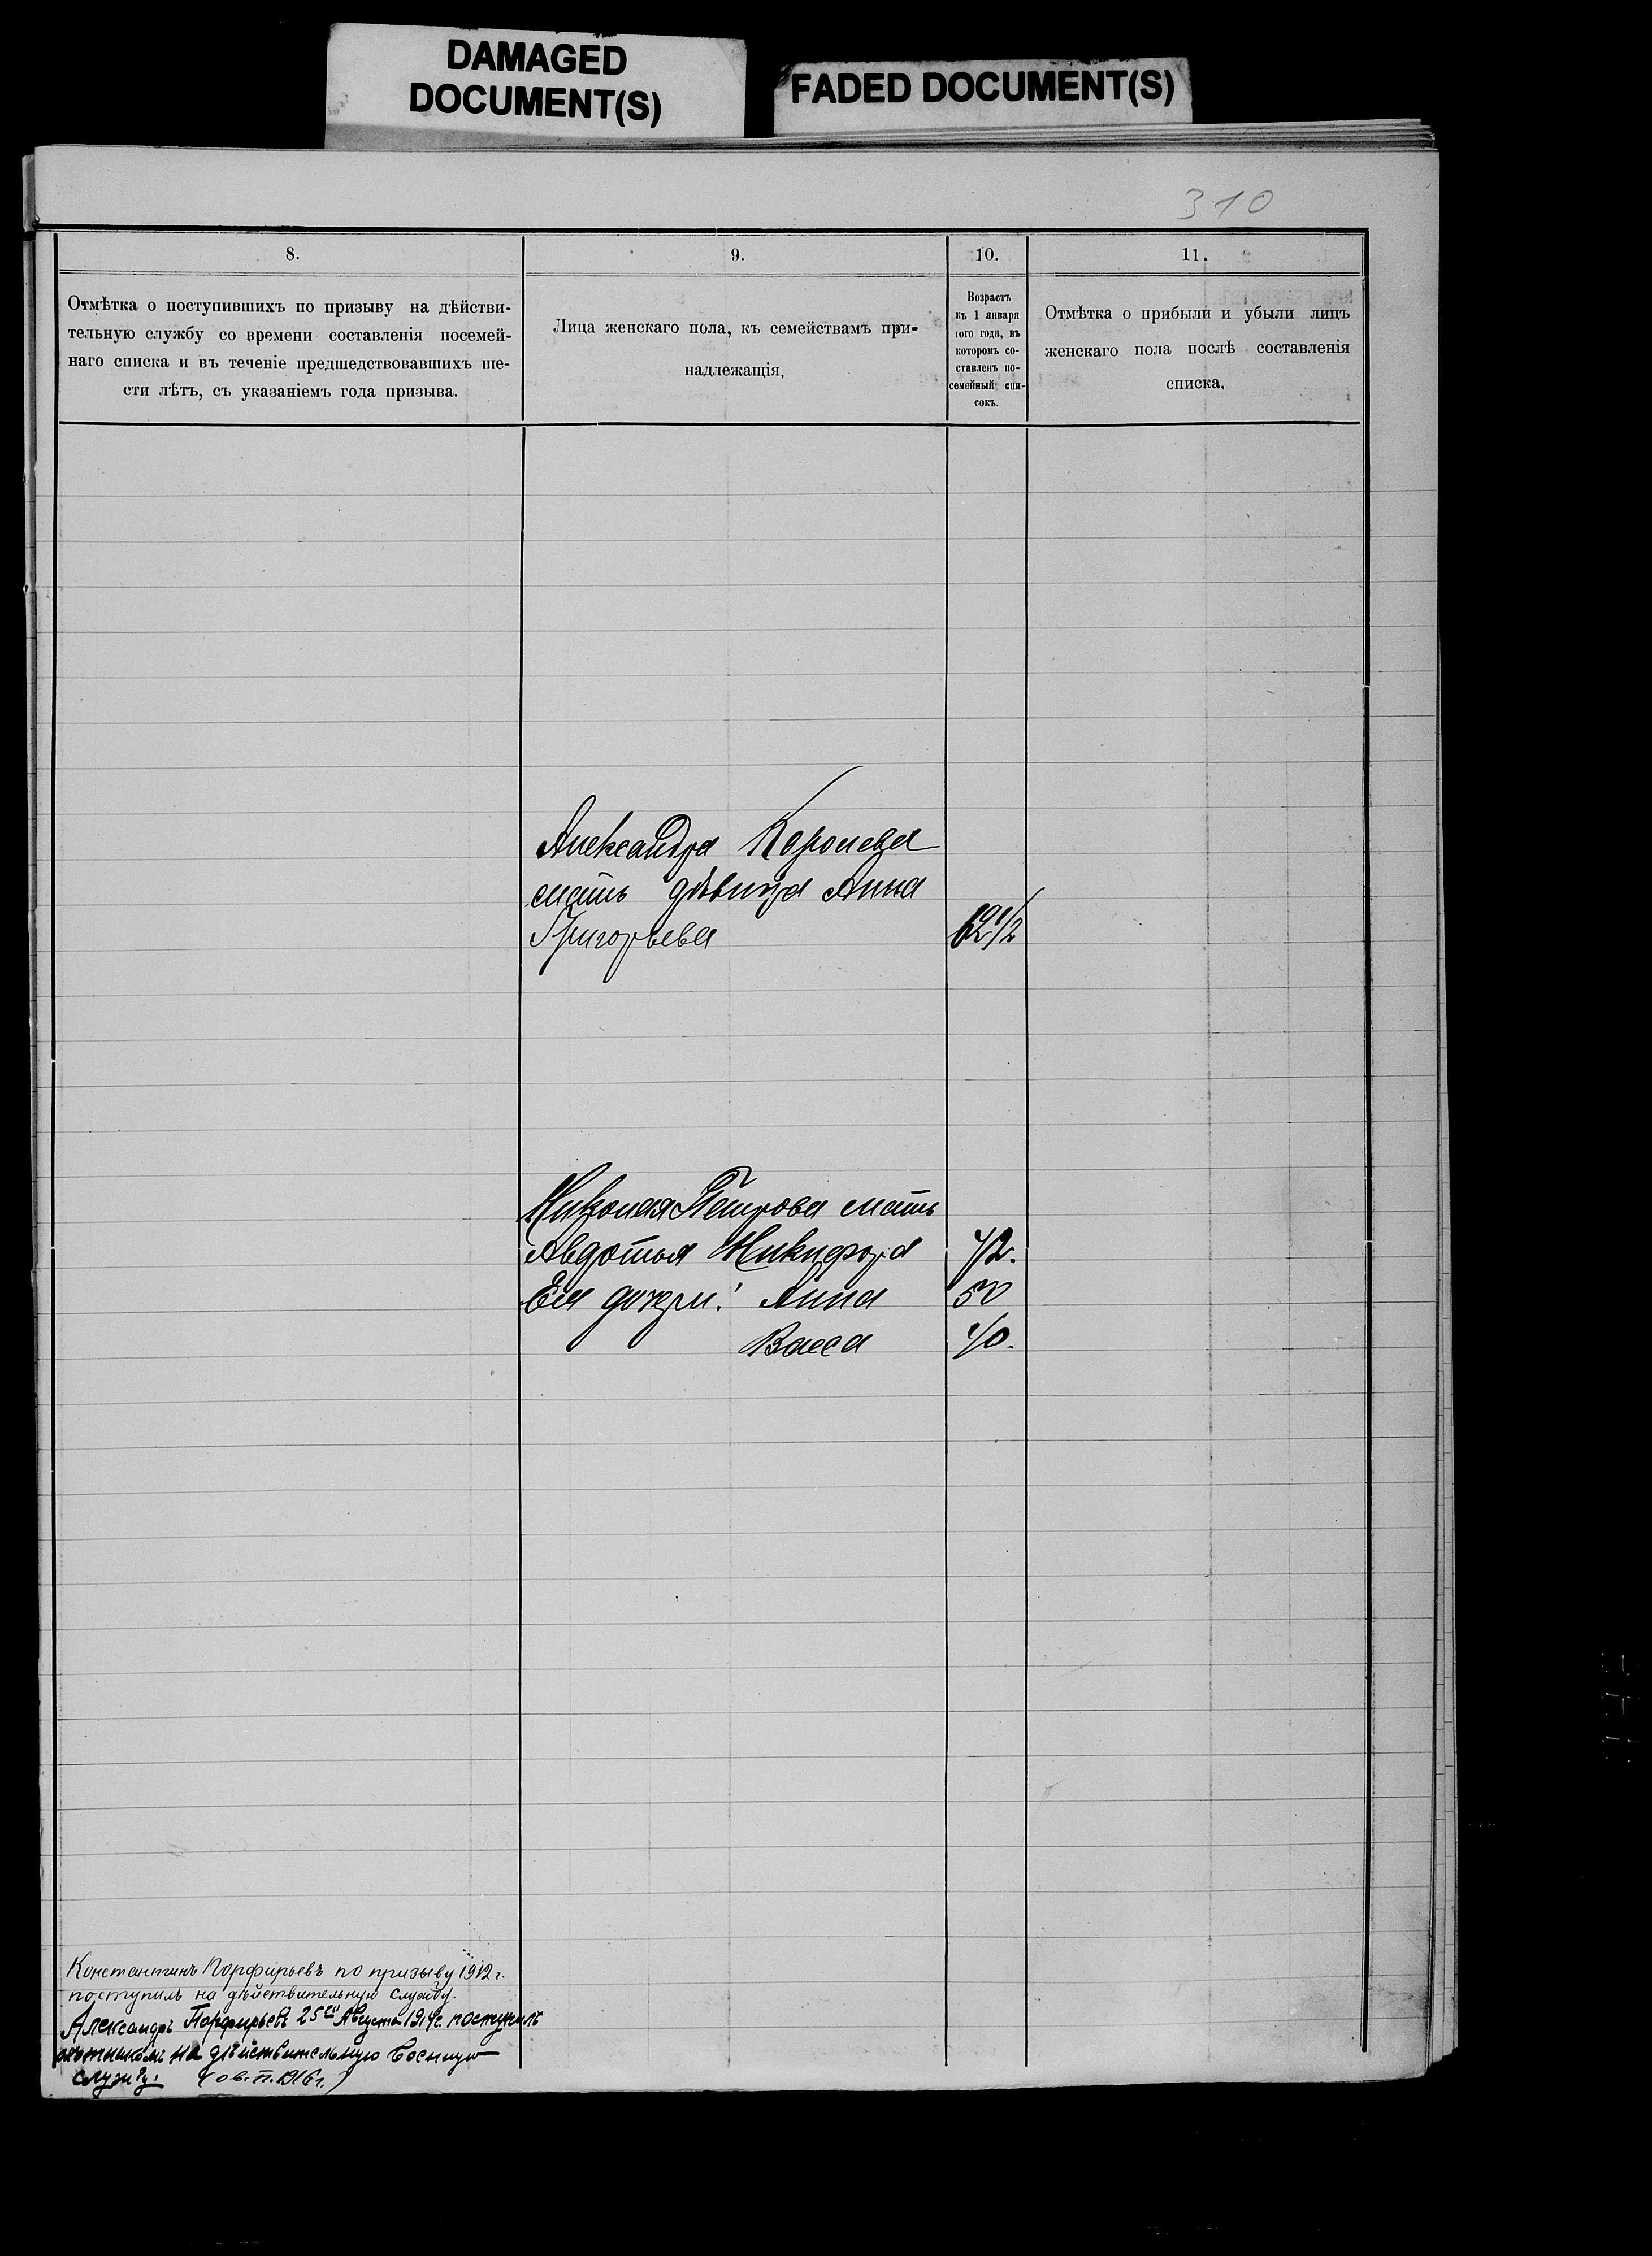 DAMAGED
DOCUMENT(S)
FADED DOCUMENT(S)
310
8.
Отмѣтка о поступившихъ по призыву на дѣйстви-
тельную службу со времени составленія посемей-
наго списка и въ теченіе предшедствовавшихъ ше-
сти лѣтъ, съ указаніемъ года призыва.
9.
Лица женскаго пола, къ семействамъ при-
надлежащія,
10.
Возрастъ
къ 1 января
того года, въ
которомъ со-
ставленъ по-
семейный спи-
сокъ.
11.
Отмѣтка о прибыли и убыли лицъ
женскаго пола послѣ составленія
списка,
Александра Королева
мать дѣвица Анна
Григорьева
Николая Петрова мать
Авдотья Никифора 72.
Ея дочери: Анна 50
Васса 40.
Константинъ Порфирьевъ по призыву 1912 г.
поступилъ на дѣйствительную службу.
Александръ Порфирьевъ 25го Августа 1914г. поступилъ
охотникомъ на дѣйствительную военную
службу. 1916 г.)